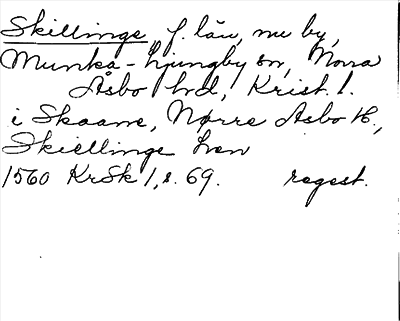 Skillinge f. län, nu by,
Munka-Ljungby sn, Norra
Åsbo hd, Krist. l.
i Skaane, Nørre Asbo H.,
Skiellinge Len
1560 KrSk 1, s. 69. regest.